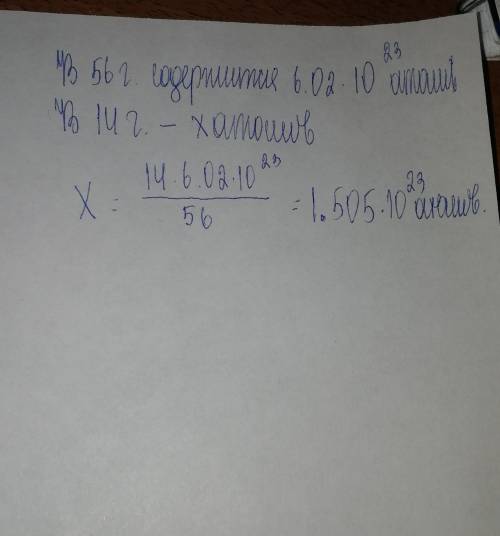 В 56 г. содержится 6.02 · 10²³ атомов
В 14 г. – x атомов
X = 14 · 6.02 · 10²³ / 56 = 1.505 · 10²³ атомов.